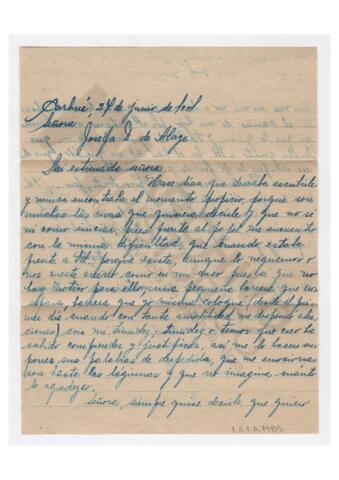 Carhué, 24 de junio de
Señora
Josefa D. de
Mi estimada señora:
Hace días que deseaba escribirle
y nunca encontraba el momento propicio, porque son
muchas las cosas que quisiera decirle y que no se
ni como iniciar, pues frente al papel me encuentro
con la misma dificultad, que cuando estaba
frente a Ud. porque existe, aunque lo neguemos o
nos cueste creerlo como en mi caso puesto que no
hay motivo para ello, una pequeña barrera que
barrera que yo misma coloqué (desde el pri-
mer día cuando con tanta amabilidad me
) con mi timidez o temor que creo ha
sabido comprender y justificar, así me lo hacen su-
poner sus palabras de despedida, que me emociona-
ron hasta las lágrimas y que no imagina cuánto
le agradezco.
Señora, siempre quise decirle que quiero
1.E.1.A.1985